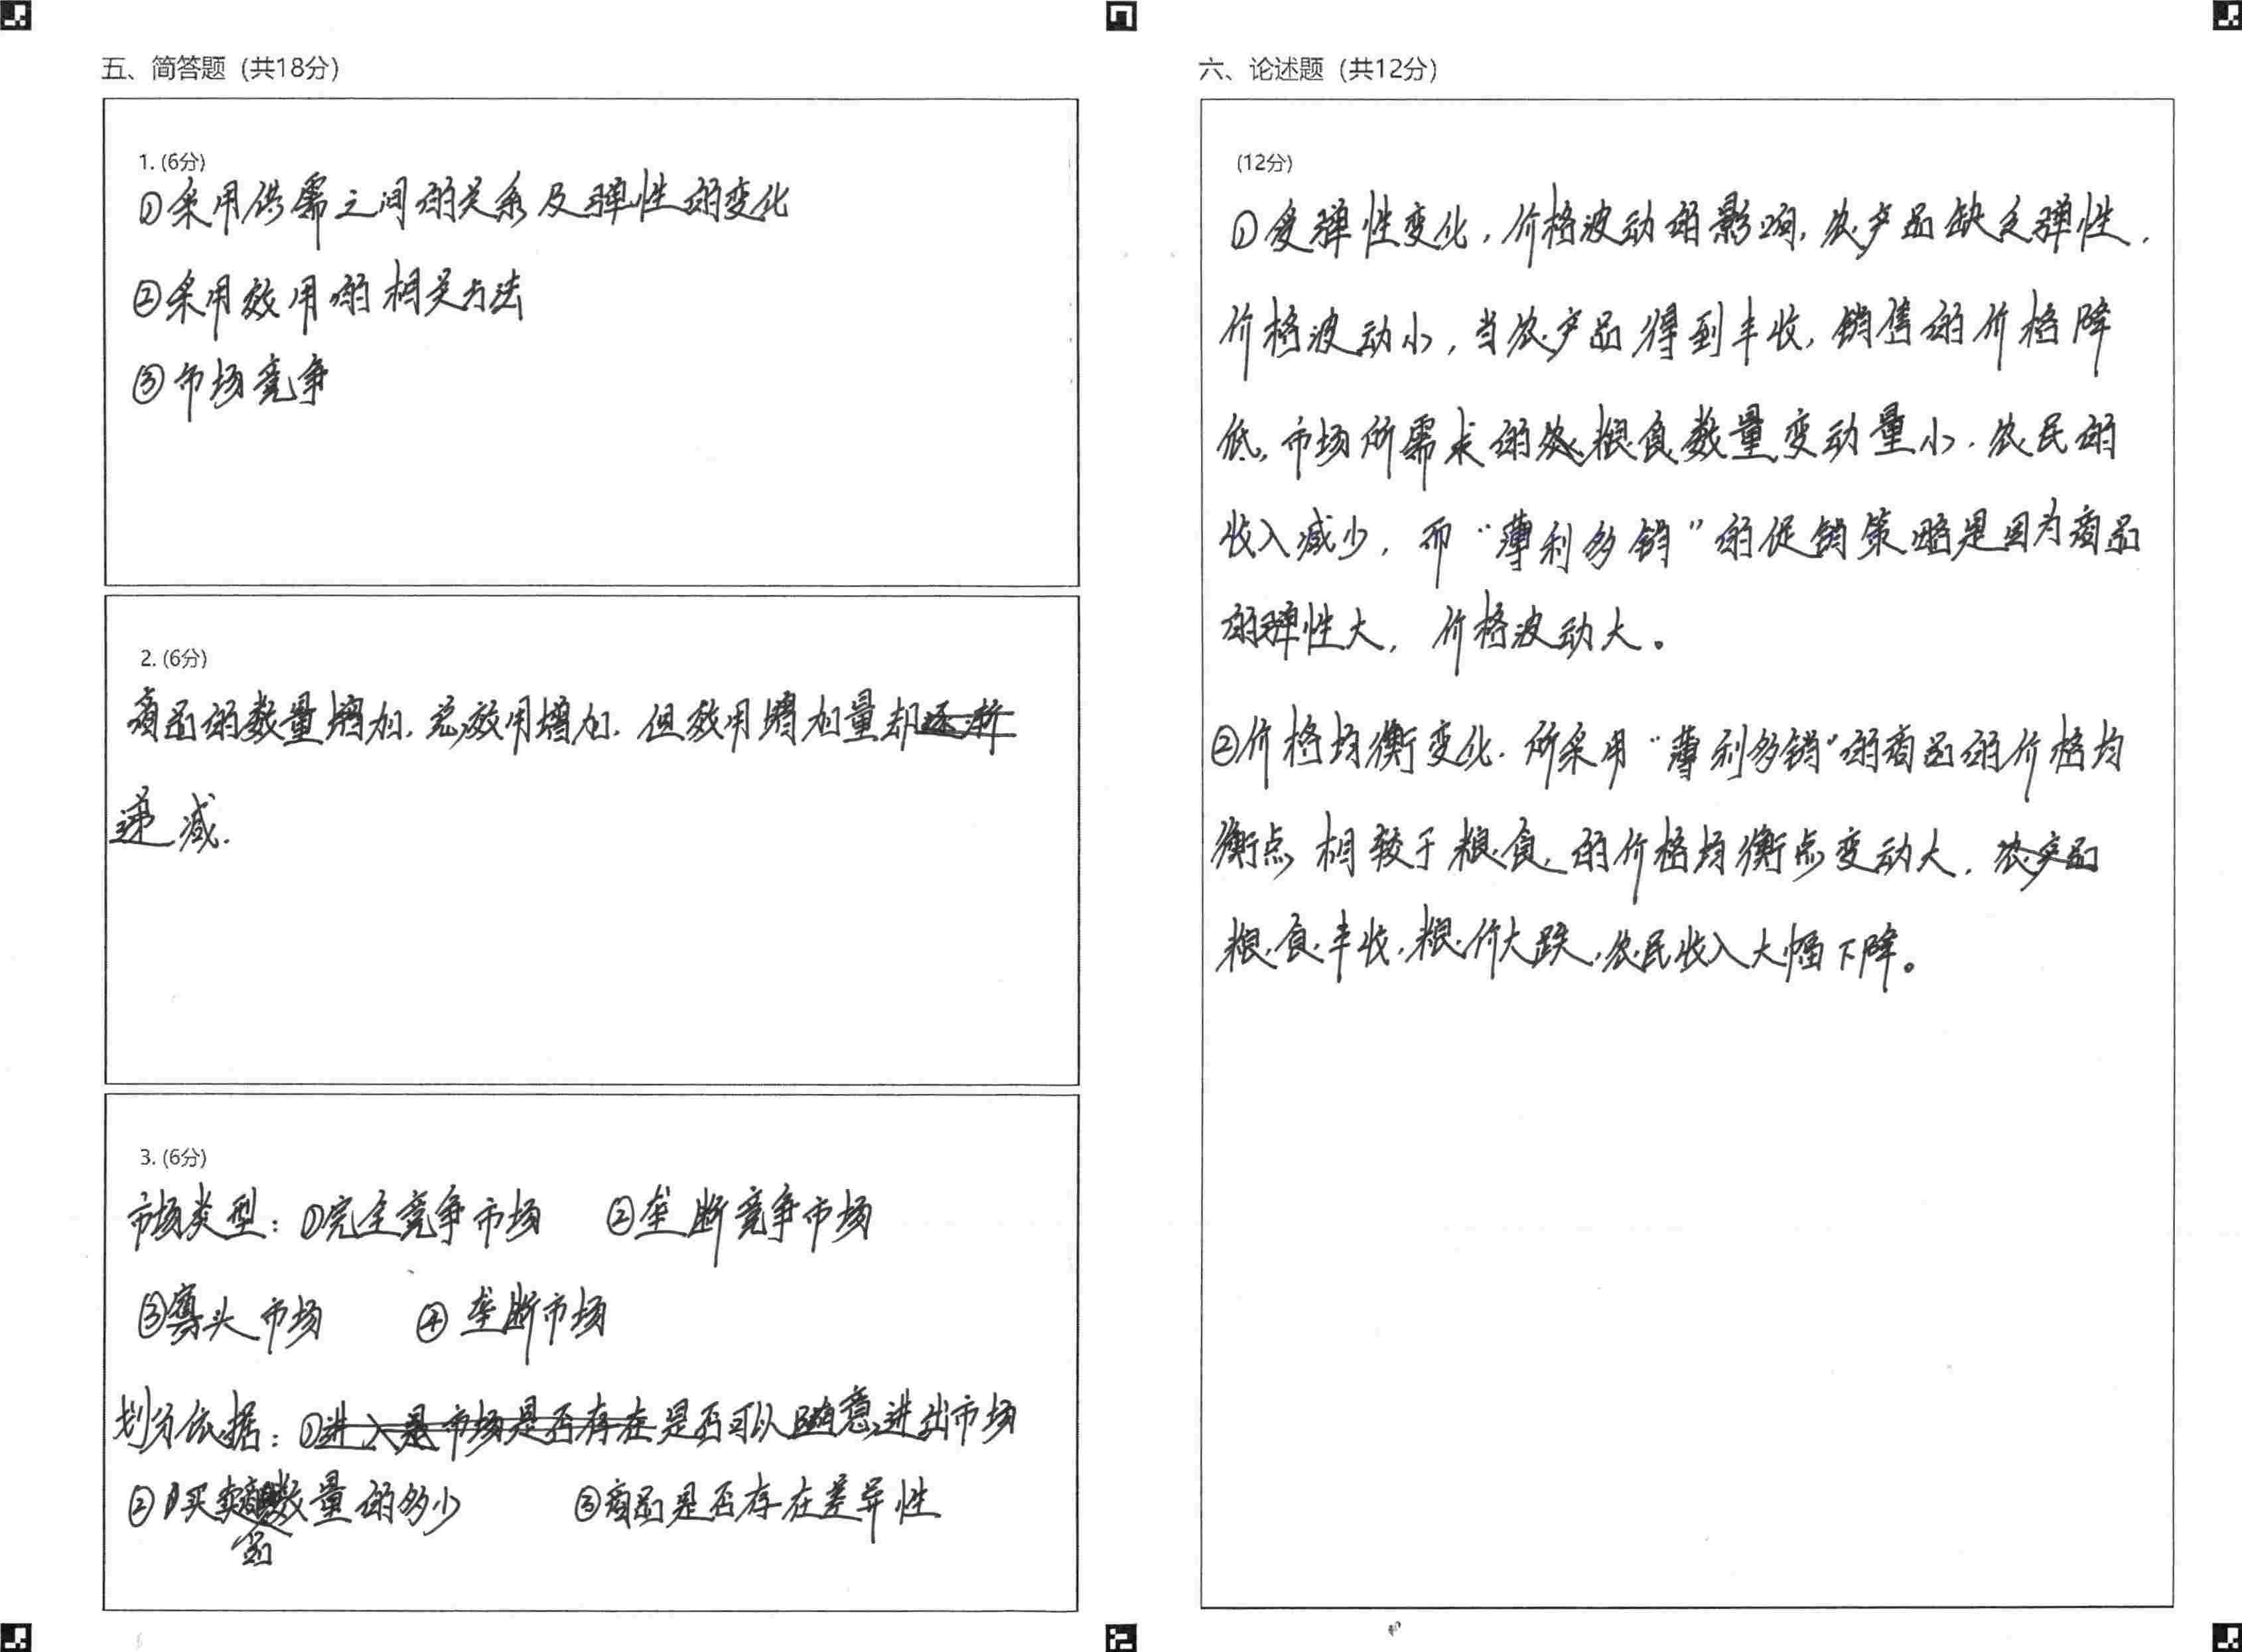 五、简答题（共18分）
1. (6分)
①采用供需之间的关系及弹性的变化
②采用效用的相关方法
③市场竞争
2. (6分)
商品的数量增加,总效用增加,但效用增加量却逐渐
递减.
3. (6分)
市场类型：①完全竞争市场 ②垄断竞争市场
③寡头市场 ④垄断市场
划分依据：①进入是市场是否存在是否可以随意进出市场
②买卖数量的多少 ③商品是否存在差异性
六、论述题（共12分）
(12分)
①受弹性变化,价格波动的影响,农产品缺乏弹性,
价格波动小,当农产品得到丰收,销售的价格降
低,市场所需求的农粮食数量变动量小.农民的
收入减少,而“薄利多销”的促销策略是因为商品
的弹性大,价格波动大。
②价格均衡变化.所采用“薄利多销”的商品的价格均
衡点相较于粮食,的价格均衡点变动大,农产品
粮食丰收,粮价大跌,农民收入大幅下降。